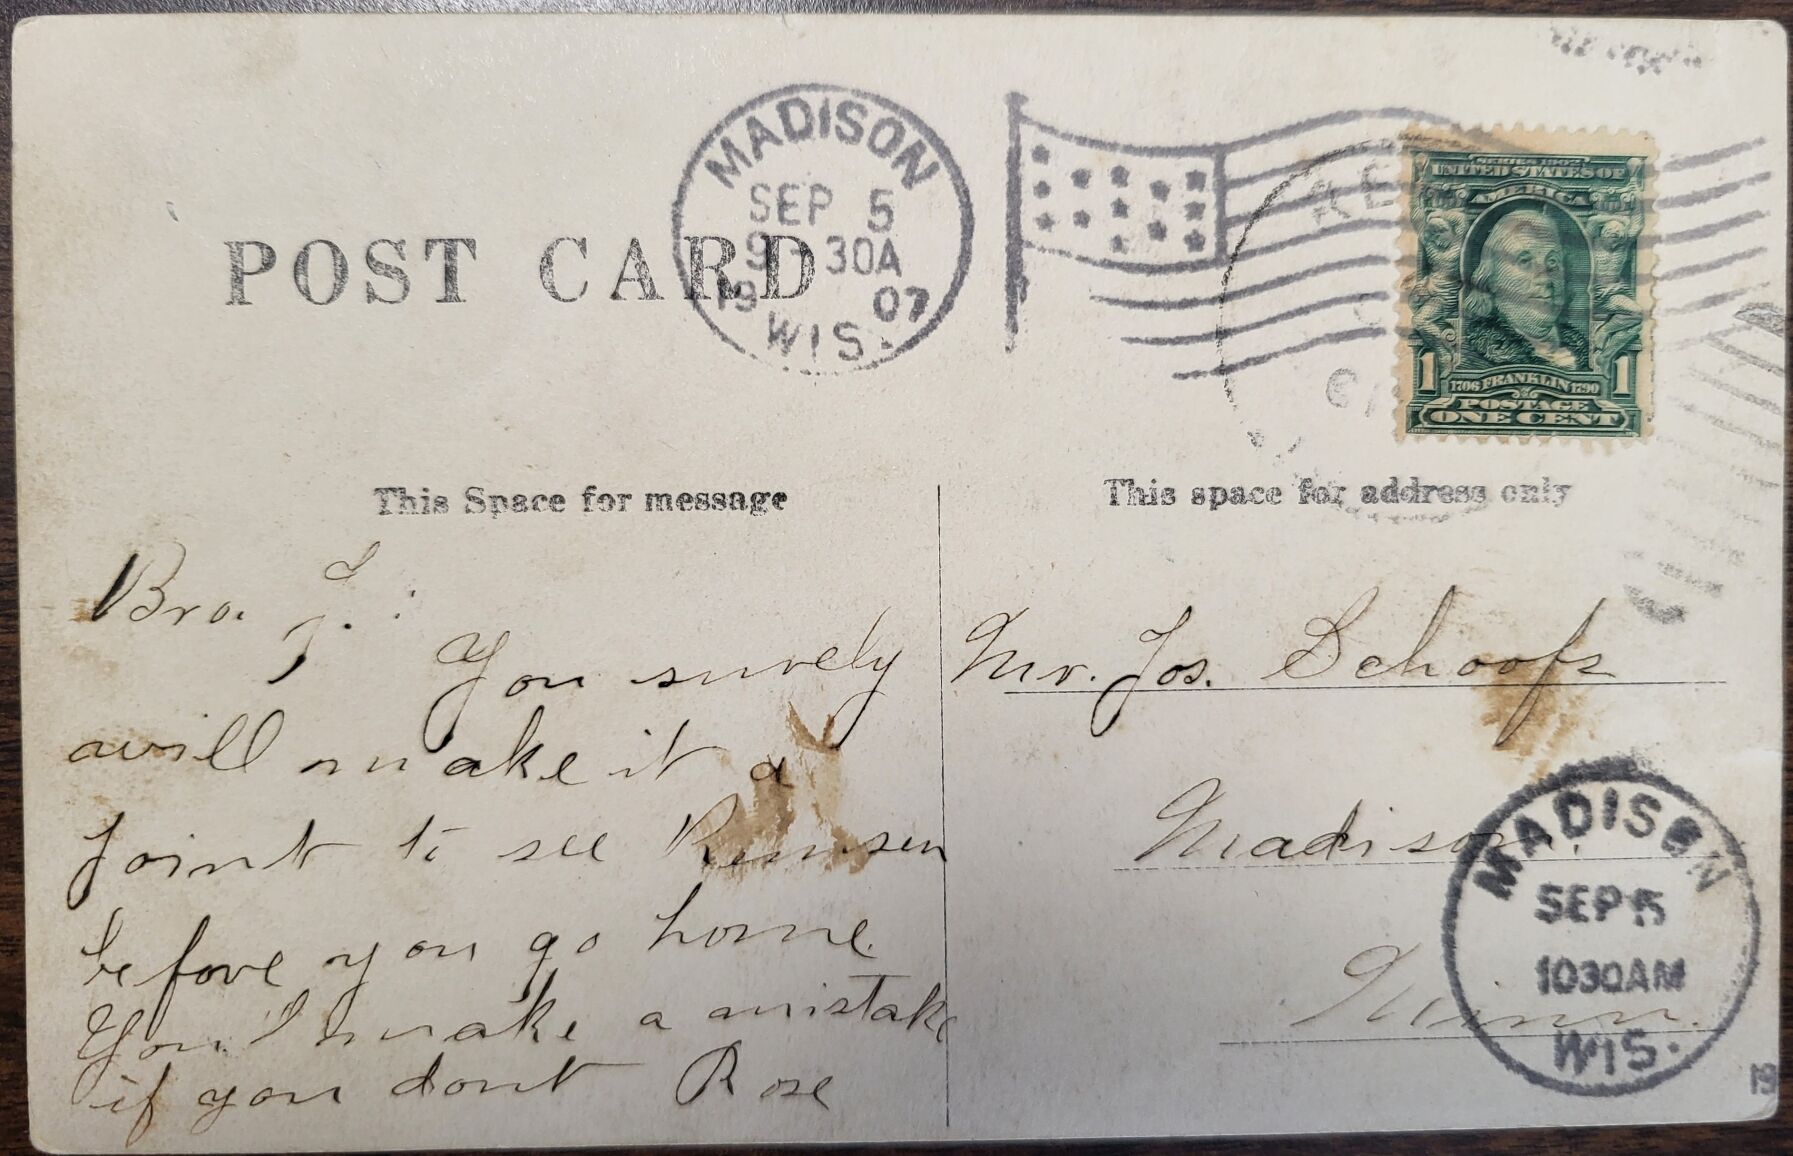 MADISON
SEP 5
9-30A
19 07
WIS.
SERIES 1902
UNITED STATES OF
AMERICA
1 1706 FRANKLIN 1790 1
POSTAGE
ONE CENT
POST CARD
This Space for message
Bro. J.:
You surely
will make it a
point to see Remsen
before you go home.
You'l make a mistake
if you dont Rose
This space for address only
Mr. Jos. Schoofs
Madison.
Minn.
MADISON
SEP 5
1030AM
WIS.
19